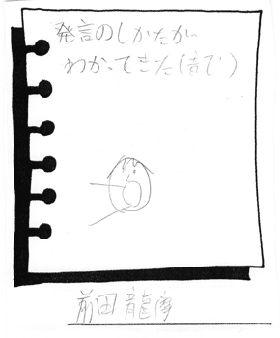 発言のしかたが
わかってきた(音で)
前田 龍摩